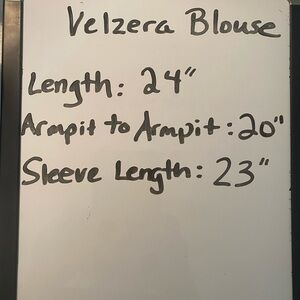 Velzera Blouse
Length: 24"
Armpit to Armpit: 20"
Sleeve Length: 23"